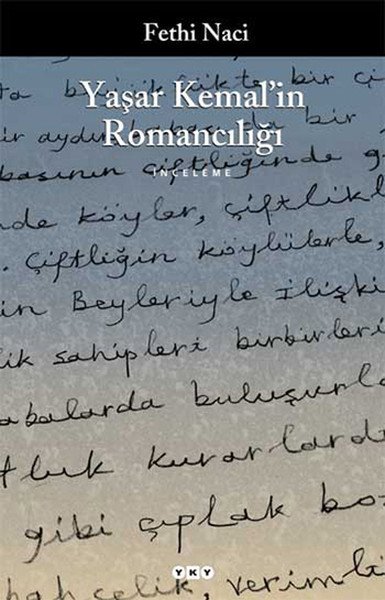 Fethi Naci
Yaşar Kemal'in
Romancılığı
İNCELEME
bir çi
ir aydın babası da bir
basının çiftliğinde g
nde köyler, çiftlikl
. Çiftliğin köylülerle,
in Beyleriyle ilişki
lik sahipleri birbirleri
abalarda buluşurla
tluk kurarlardı
gibi çıplak boz
YKY
bahçelik, verimli